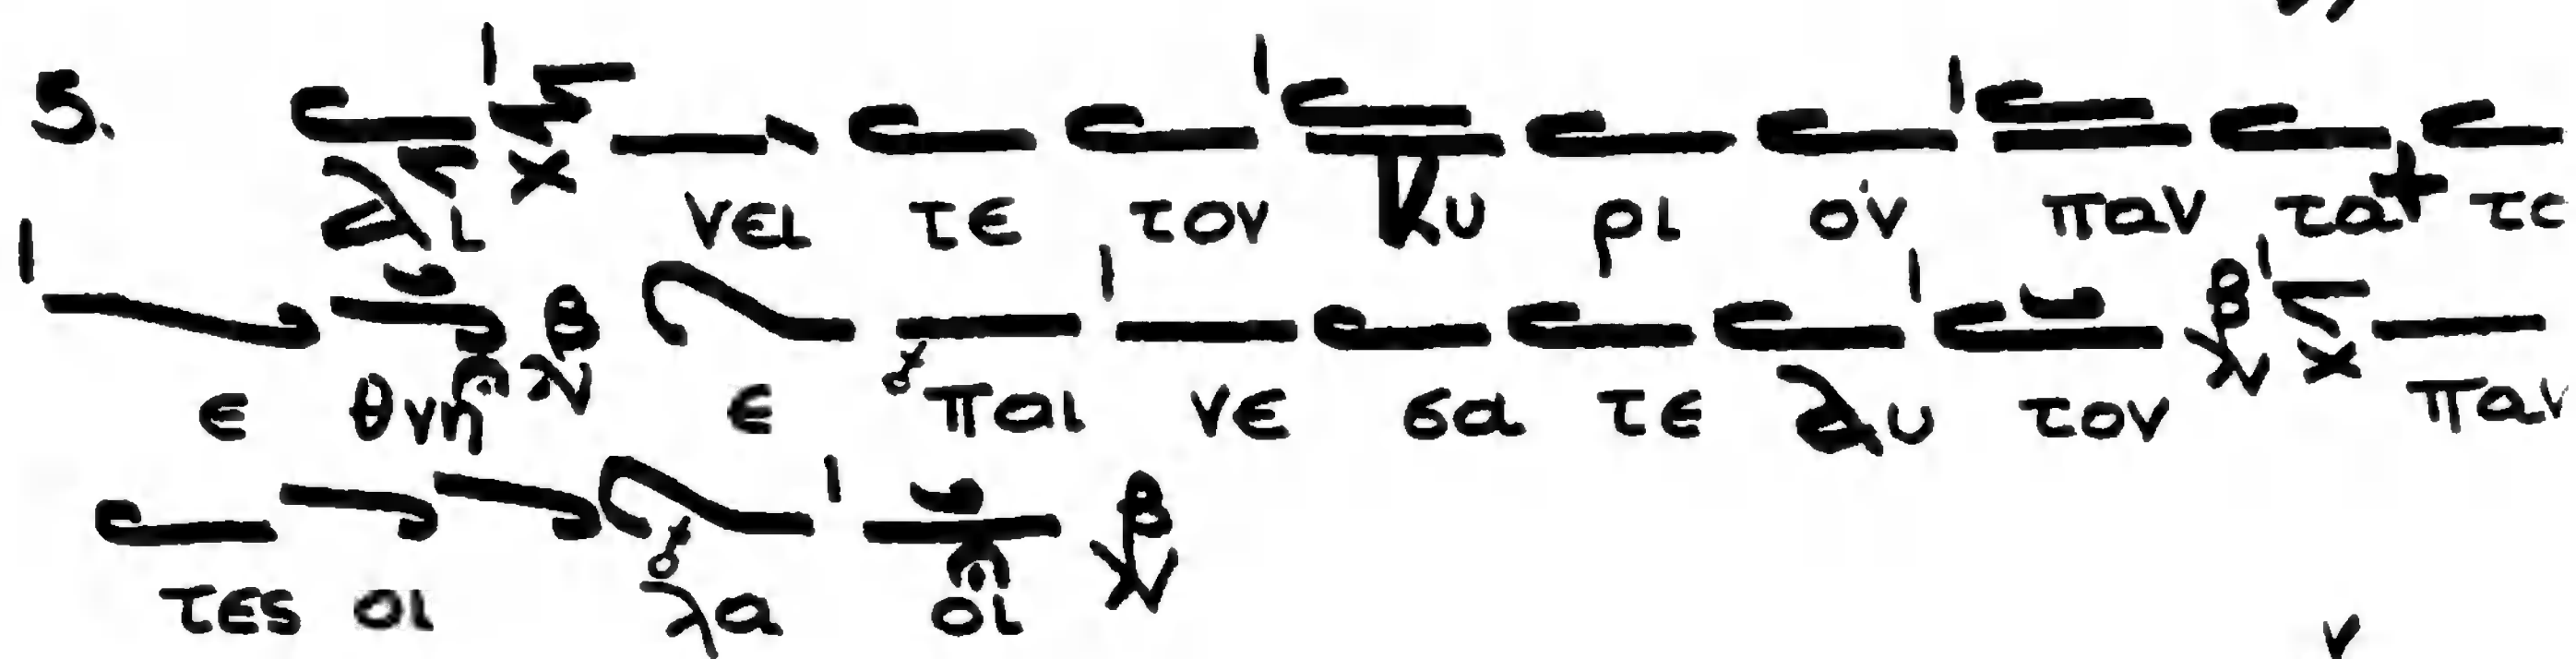 5. Αι νει τε τον Κυ ρι ον παν τα τα
ε θνη ε παι νε σα τε Αυ τον παν
τες οι λα οι